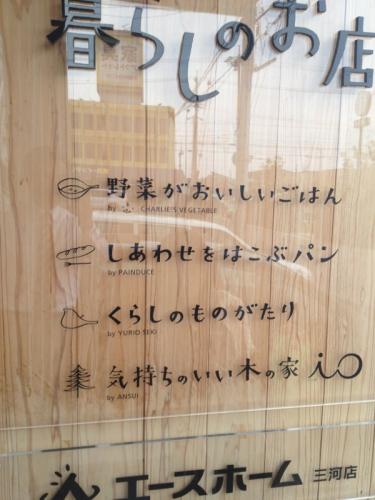 暮らしのお店
野菜がおいしいごはん
by CHARLIE'S VEGETABLE
しあわせをはこぶパン
by PAINDUCE
くらしのものがたり
by YURIO SEKI
気持ちのいい木の家 iO
by ANSUI
エースホーム 三河店